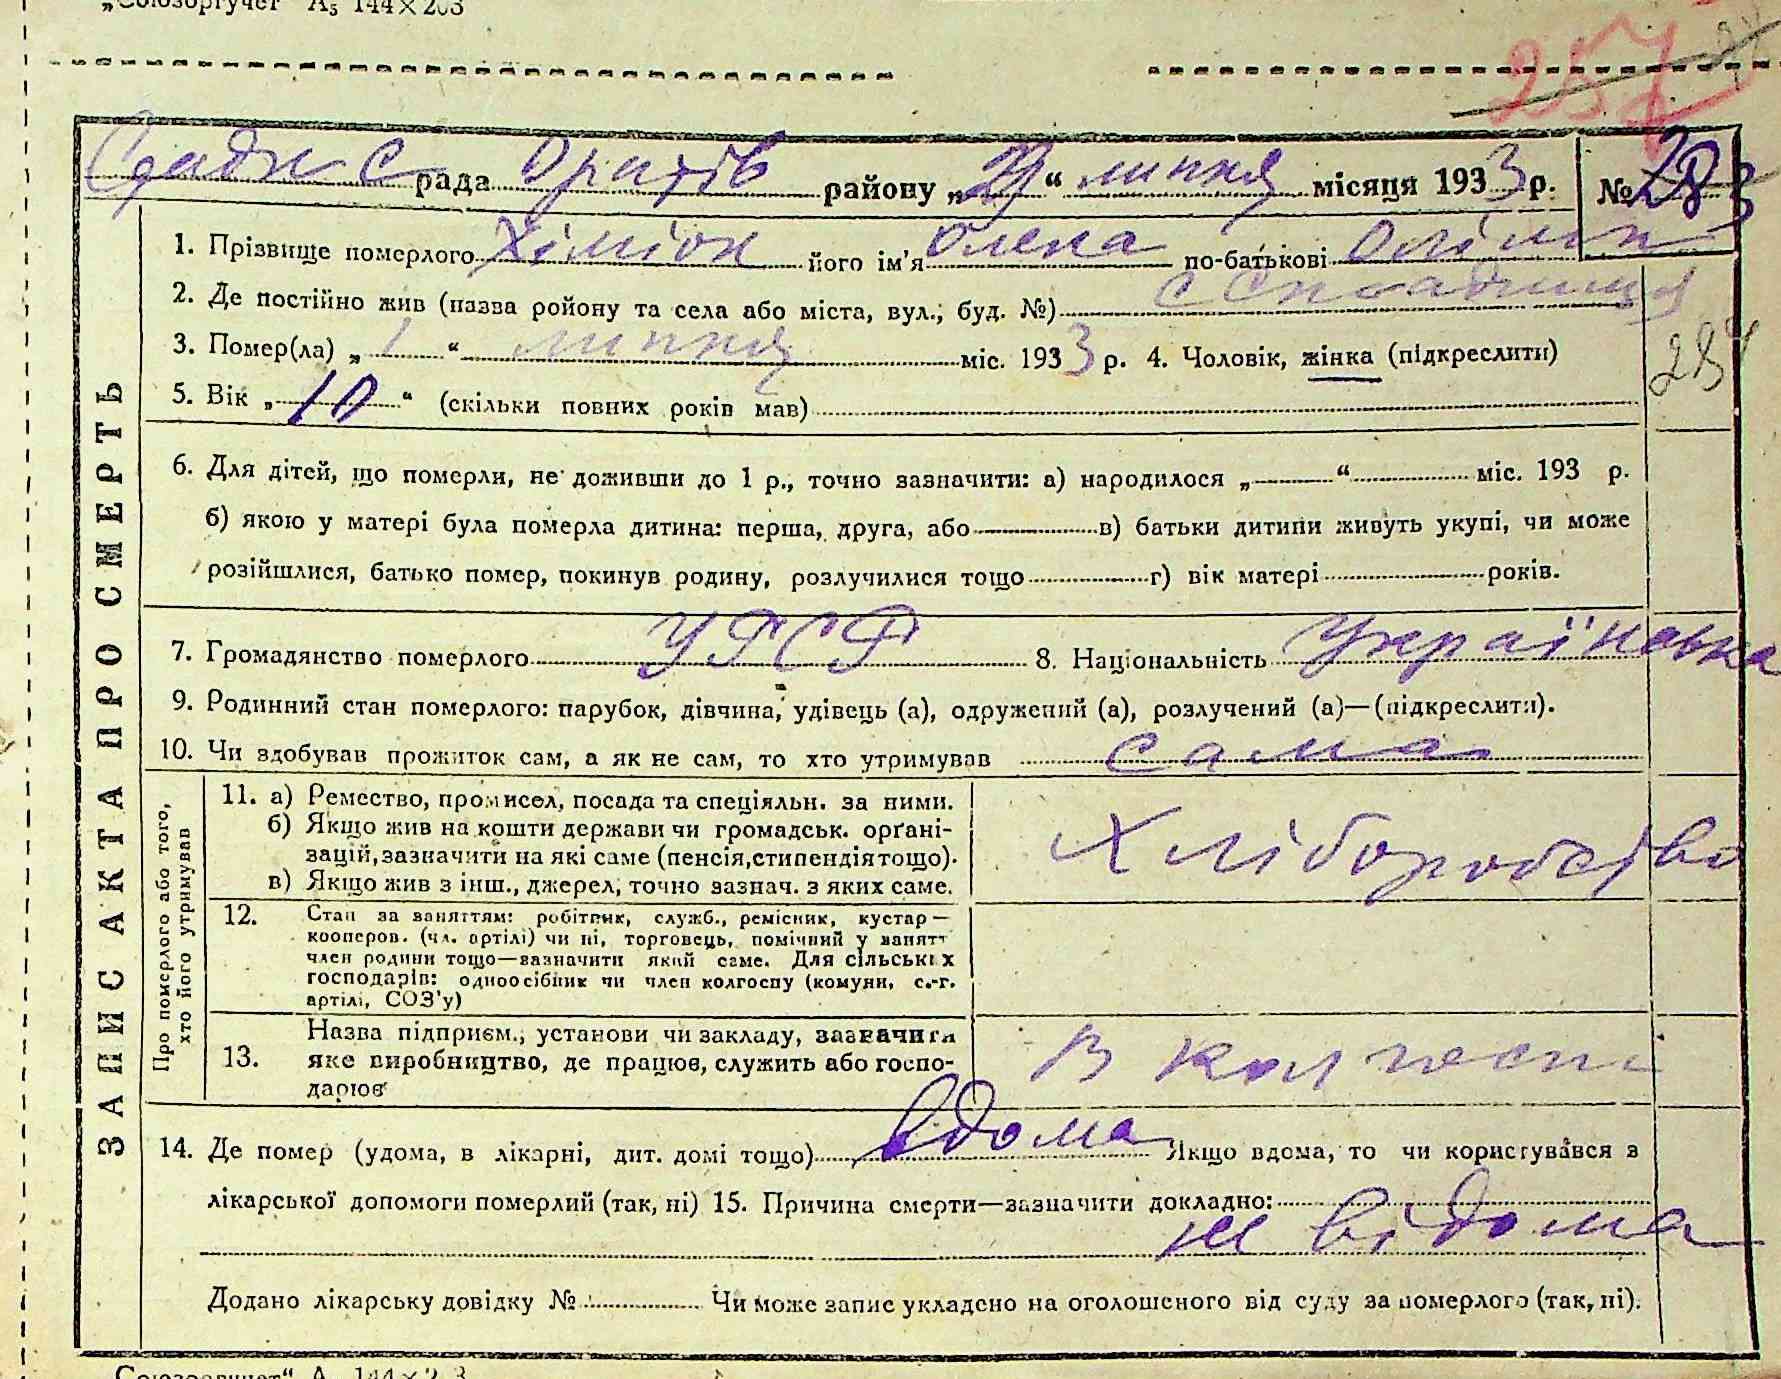 „Союзоргучет" А₅ 144×203
257
рада Оратів району „29" липня місяця 1933 р. № 283
1. Прізвище померлого Хіміок його ім'я Олена по-батькові
2. Де постійно жив (назва ройону та села або міста, вул.; буд. №) с
3. Помер(ла) „1" липня міс. 1933 р. 4. Чоловік, жінка (підкреслити)
284
5. Вік „10" (скільки повних років мав)
6. Для дітей, що померли, не доживши до 1 р., точно зазначити: а) народилося „ " міс. 193 р.
б) якою у матері була померла дитина: перша, друга, або в) батьки дитини живуть укупі, чи може
розійшлися, батько помер, покинув родину, розлучилися тощо г) вік матері років.
7. Громадянство померлого УРСР 8. Національність Українка
9. Родинний стан померлого: парубок, дівчина, удівець (а), одружений (а), розлучений (а)—(підкреслити).
10. Чи здобував прожиток сам, а як не сам, то хто утримував сама
ЗАПИС АКТА ПРО СМЕРТЬ
Про померлого або того, хто його утримував
11. а) Ремество, промисел, посада та спеціяльн. за ними.
б) Якщо жив на кошти держави чи громадськ. орґані-
зацій, зазначити на які саме (пенсія, стипендія тощо).
в) Якщо жив з інш., джерел, точно зазнач. з яких саме.
Хліборобство
12. Стан за заняттям: робітник, служб., ремісник, кустар —
кооперов. (чл. артілі) чи ні, торговець, помічний у занятт
член родини тощо—зазначити який саме. Для сільських
господарів: одноосібник чи член колгоспу (комуни, с.-г.
артілі, СОЗ'у)
13. Назва підприєм., установи чи закладу, зазначити
яке виробництво, де працює, служить або госпо-
дарює
В колгоспі
14. Де помер (удома, в лікарні, дит. домі тощо) вдома Якщо вдома, то чи користувався з
лікарської допомоги померлий (так, ні) 15. Причина смерти—зазначити докладно:
не відома
Додано лікарську довідку № Чи може запис укладено на оголошеного від суду за померлого (так, ні).
„Союзоргучет" А 144×2 3